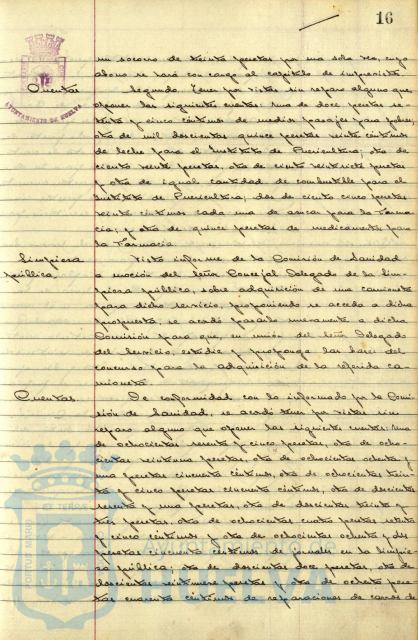 16
un socorro de treinta pesetas por una sola vez, cuyo
abono se hará con cargo al capítulo de imprevistos.
Cuentas
Segundo. Tener por vistas sin reparo alguno que
oponer las siguientes cuentas: Una de doce pesetas se-
tenta y cinco céntimos de medios pasajes para pobres,
otra de mil doscientas quince pesetas veinte céntimos
de leche para el Instituto de Puericultura; otra de
ciento veinte pesetas, otra de ciento veintisiete pesetas
y otra de igual cantidad de combustible para el
Instituto de Puericultura; dos de ciento cinco pesetas
veinte céntimos cada una de azúcar para la Farma-
cia; y otra de quince pesetas de medicamentos para
la Farmacia.
Limpieza
pública.
Visto informe de la Comisión de Sanidad
a moción del Señor Concejal Delegado de la lim-
pieza pública, sobre adquisición de una camioneta
para dicho servicio, proponiendo se acceda a dicha
propuesta, se acordó pasarlo nuevamente a dicha
Comisión para que, en unión del Señor Delegado
del Servicio, estudie y proponga las bases del
concurso para la adquisición de la referida ca-
mioneta.
Cuentas
De conformidad con lo informado por la Comi-
sión de Sanidad, se acordó tener por vistas sin
reparo alguno que oponer las siguientes cuentas: Una
de ochocientas sesenta y cinco pesetas, otra de ocho-
cientas veintiuna pesetas, otra de ochocientas ochenta y
una pesetas cincuenta céntimos, otra de ochocientas trein-
ta y cinco pesetas cincuenta céntimos, otra de doscientas
sesenta y una pesetas, otra de doscientas treinta y
tres pesetas, otra de ochocientas cuatro pesetas setenta
y cinco céntimos y otra de ochocientas ochenta y dos
pesetas cincuenta céntimos de jornales en la limpie-
za pública; otra de doscientas doce pesetas, otra de
doscientas veintinueve pesetas y otra de ochenta pese-
tas cuarenta céntimos de reparaciones de carros de
AYUNTAMIENTO DE HUELVA